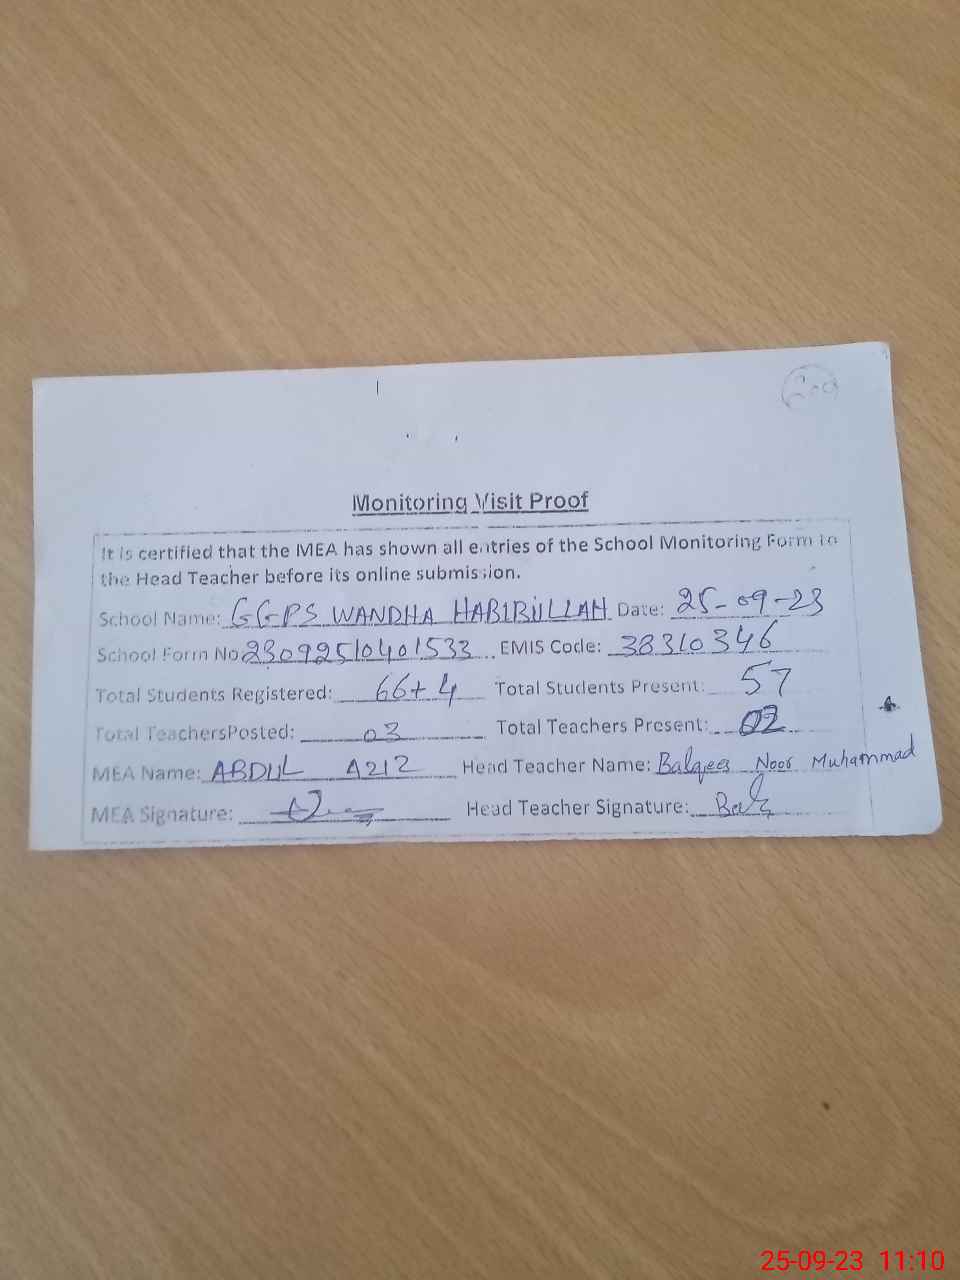 Monitoring Visit Proof
It is certified that the MEA has shown all entries of the School Monitoring Form to
the Head Teacher before its online submission.
School Name: GGPS WANDHA HABIBULLAH Date: 25-09-23
School Form No 23092510401533 EMIS Code: 38310346
Total Students Registered: 66+4 Total Students Present: 57
Total TeachersPosted: 03 Total Teachers Present: 02
MEA Name: ABDUL AZIZ Head Teacher Name: Balqees Noor Muhammad
MEA Signature: Head Teacher Signature:
25-09-23 11:10